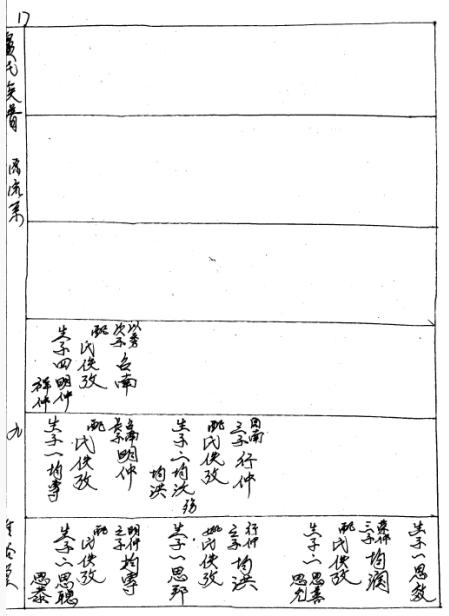 17
氏族普
源流系
以秀
次子
召南
配
氏佚攷
生子四明仲
祥仲
因南
三子
行仲
配氏佚攷
生子二均沈
殇
均洪
召南
長子
明仲
配
氏佚攷
生子一均寧
九
生子一思敦
荣仲
三子
均润
配氏佚攷
生子二思
思光
行仲
之子
均洪
姚氏佚攷
生子一思
明仲
之子
均寧
配
氏佚攷
生子二思聰
思泰